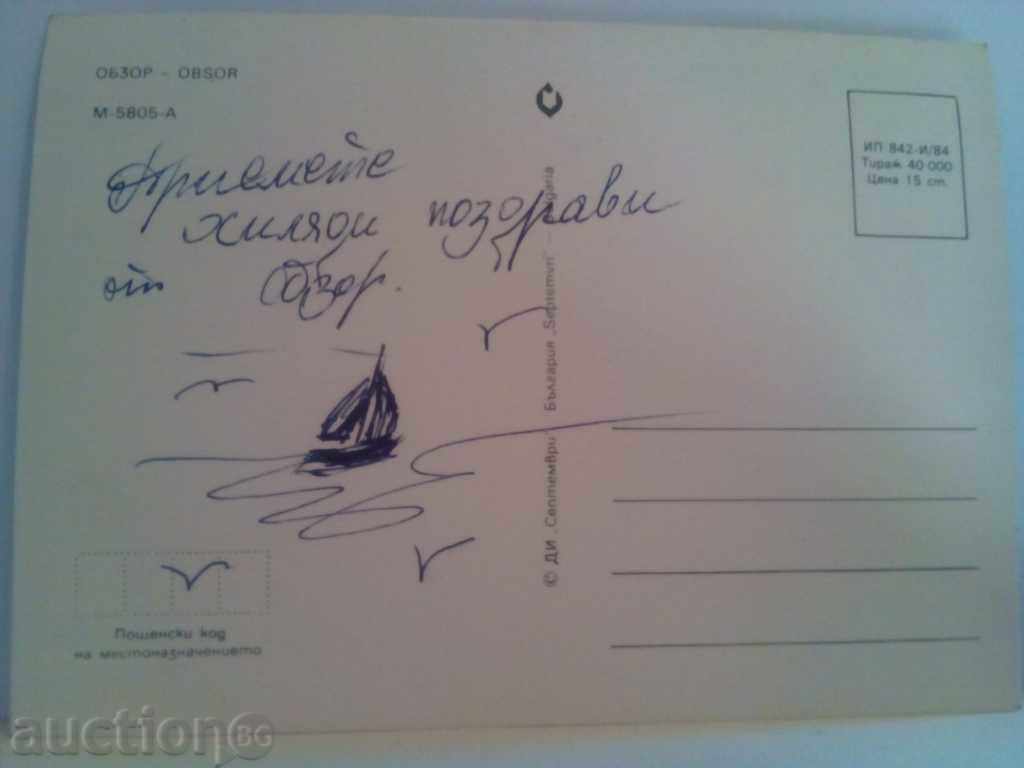 ОБЗОР - OBSOR
М-5805-А
Приемете
хиляди поздрави
от Обзор.
ИП 842-И/84
Тираж 40 000
Цена 15 ст.
© ДИ „Септември" България „Septemvri" — Bulgaria
Пощенски код
на местоназначението
auction BG